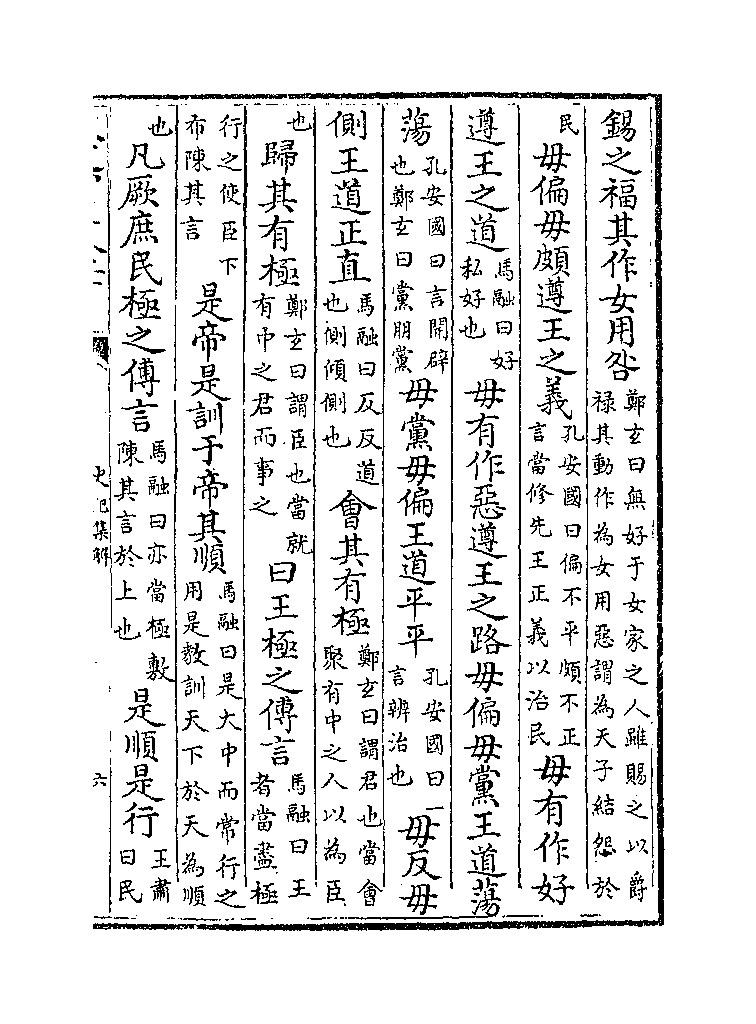 錫之福其作女用咎鄭玄曰無好于女家之人雖賜之以爵祿其動作為女用惡謂為天子結怨於
民毋偏毋頗遵王之義孔安國曰偏不平頗不正言當修先王正義以治民毋有作好
遵王之道馬融曰好私好也毋有作惡遵王之路毋偏毋黨王道蕩
蕩孔安國曰言開辟也鄭玄曰黨朋黨毋黨毋偏王道平平孔安國曰言辨治也毋反毋
側王道正直馬融曰反反道也側傾側也會其有極鄭玄曰謂君也當會聚有中之人以為臣
也歸其有極鄭玄曰謂臣也當就有中之君而事之曰王極之傅言馬融曰王者當盡極
行之使臣下布陳其言是帝是訓于帝其順馬融曰是大中而常行之用是教訓天下於天為順
也凡厥庶民極之傅言馬融曰亦當極敷陳其言於上也是順是行王肅曰民
史記集解
六